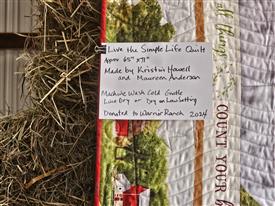 Live the Simple Life Quilt
Approx 65" x 71"
Made by Kristin Howell
and Maureen Anderson
Machine Wash Cold Gentle
Line Dry or Dry on Low Setting
Donated to Warrior Ranch 2024
COUNT YOUR